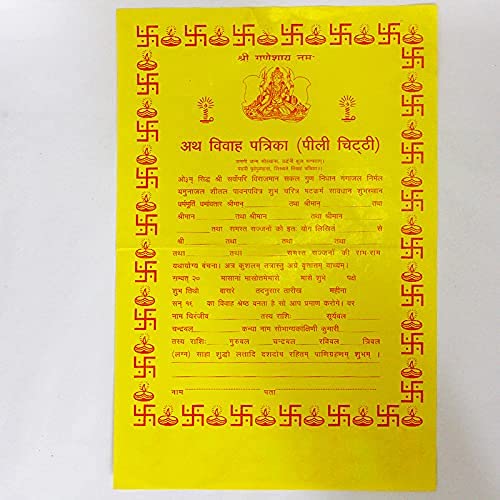 श्री गणेशाय नमः
अथ विवाह पत्रिका (पीली चिट्ठी)
ओ३म् सिद्ध श्री सर्वोपरि विराजमान सकल गुण निधान गंगाजल निर्मल
यमुनाजल शीतल पावनपवित्र शुभ चरित्र षटकर्म सावधान शुभस्थान
धर्ममूर्ति धर्मावतार श्रीमान तथा श्रीमान
श्रीमान तथा श्रीमान तथा श्रीमान
तथा समस्त सज्जनों को इतः योग लिखितं से
श्री तथा तथा
तथा समस्त सज्जनों की राम-राम
यथायोग्य बंचना। अत्र कुशलम तत्रास्तु अग्रे वृतान्तम् वाच्यम्।
सम्वत् २० मासानां मासोत्तमेमासे मासे शुभे पक्षे
शुभ तिथौ वासरे तदनुसार तारीख महीना
सन् १९ का विवाह श्रेष्ठ बनता है सो आप प्रमाण करोगे। वर
नाम चिरंजीव तस्य राशिः सूर्यबल
चन्द्रबल कन्या नाम सोभाग्यकांक्षिणी कुमारी
तस्य राशिः गुरुबल चन्द्रबल रविबल त्रिबल
(लग्न) साहा शुद्धो लतादि दशदोष रहितम् पाणिग्रहणम् शुभम्।
नाम पता